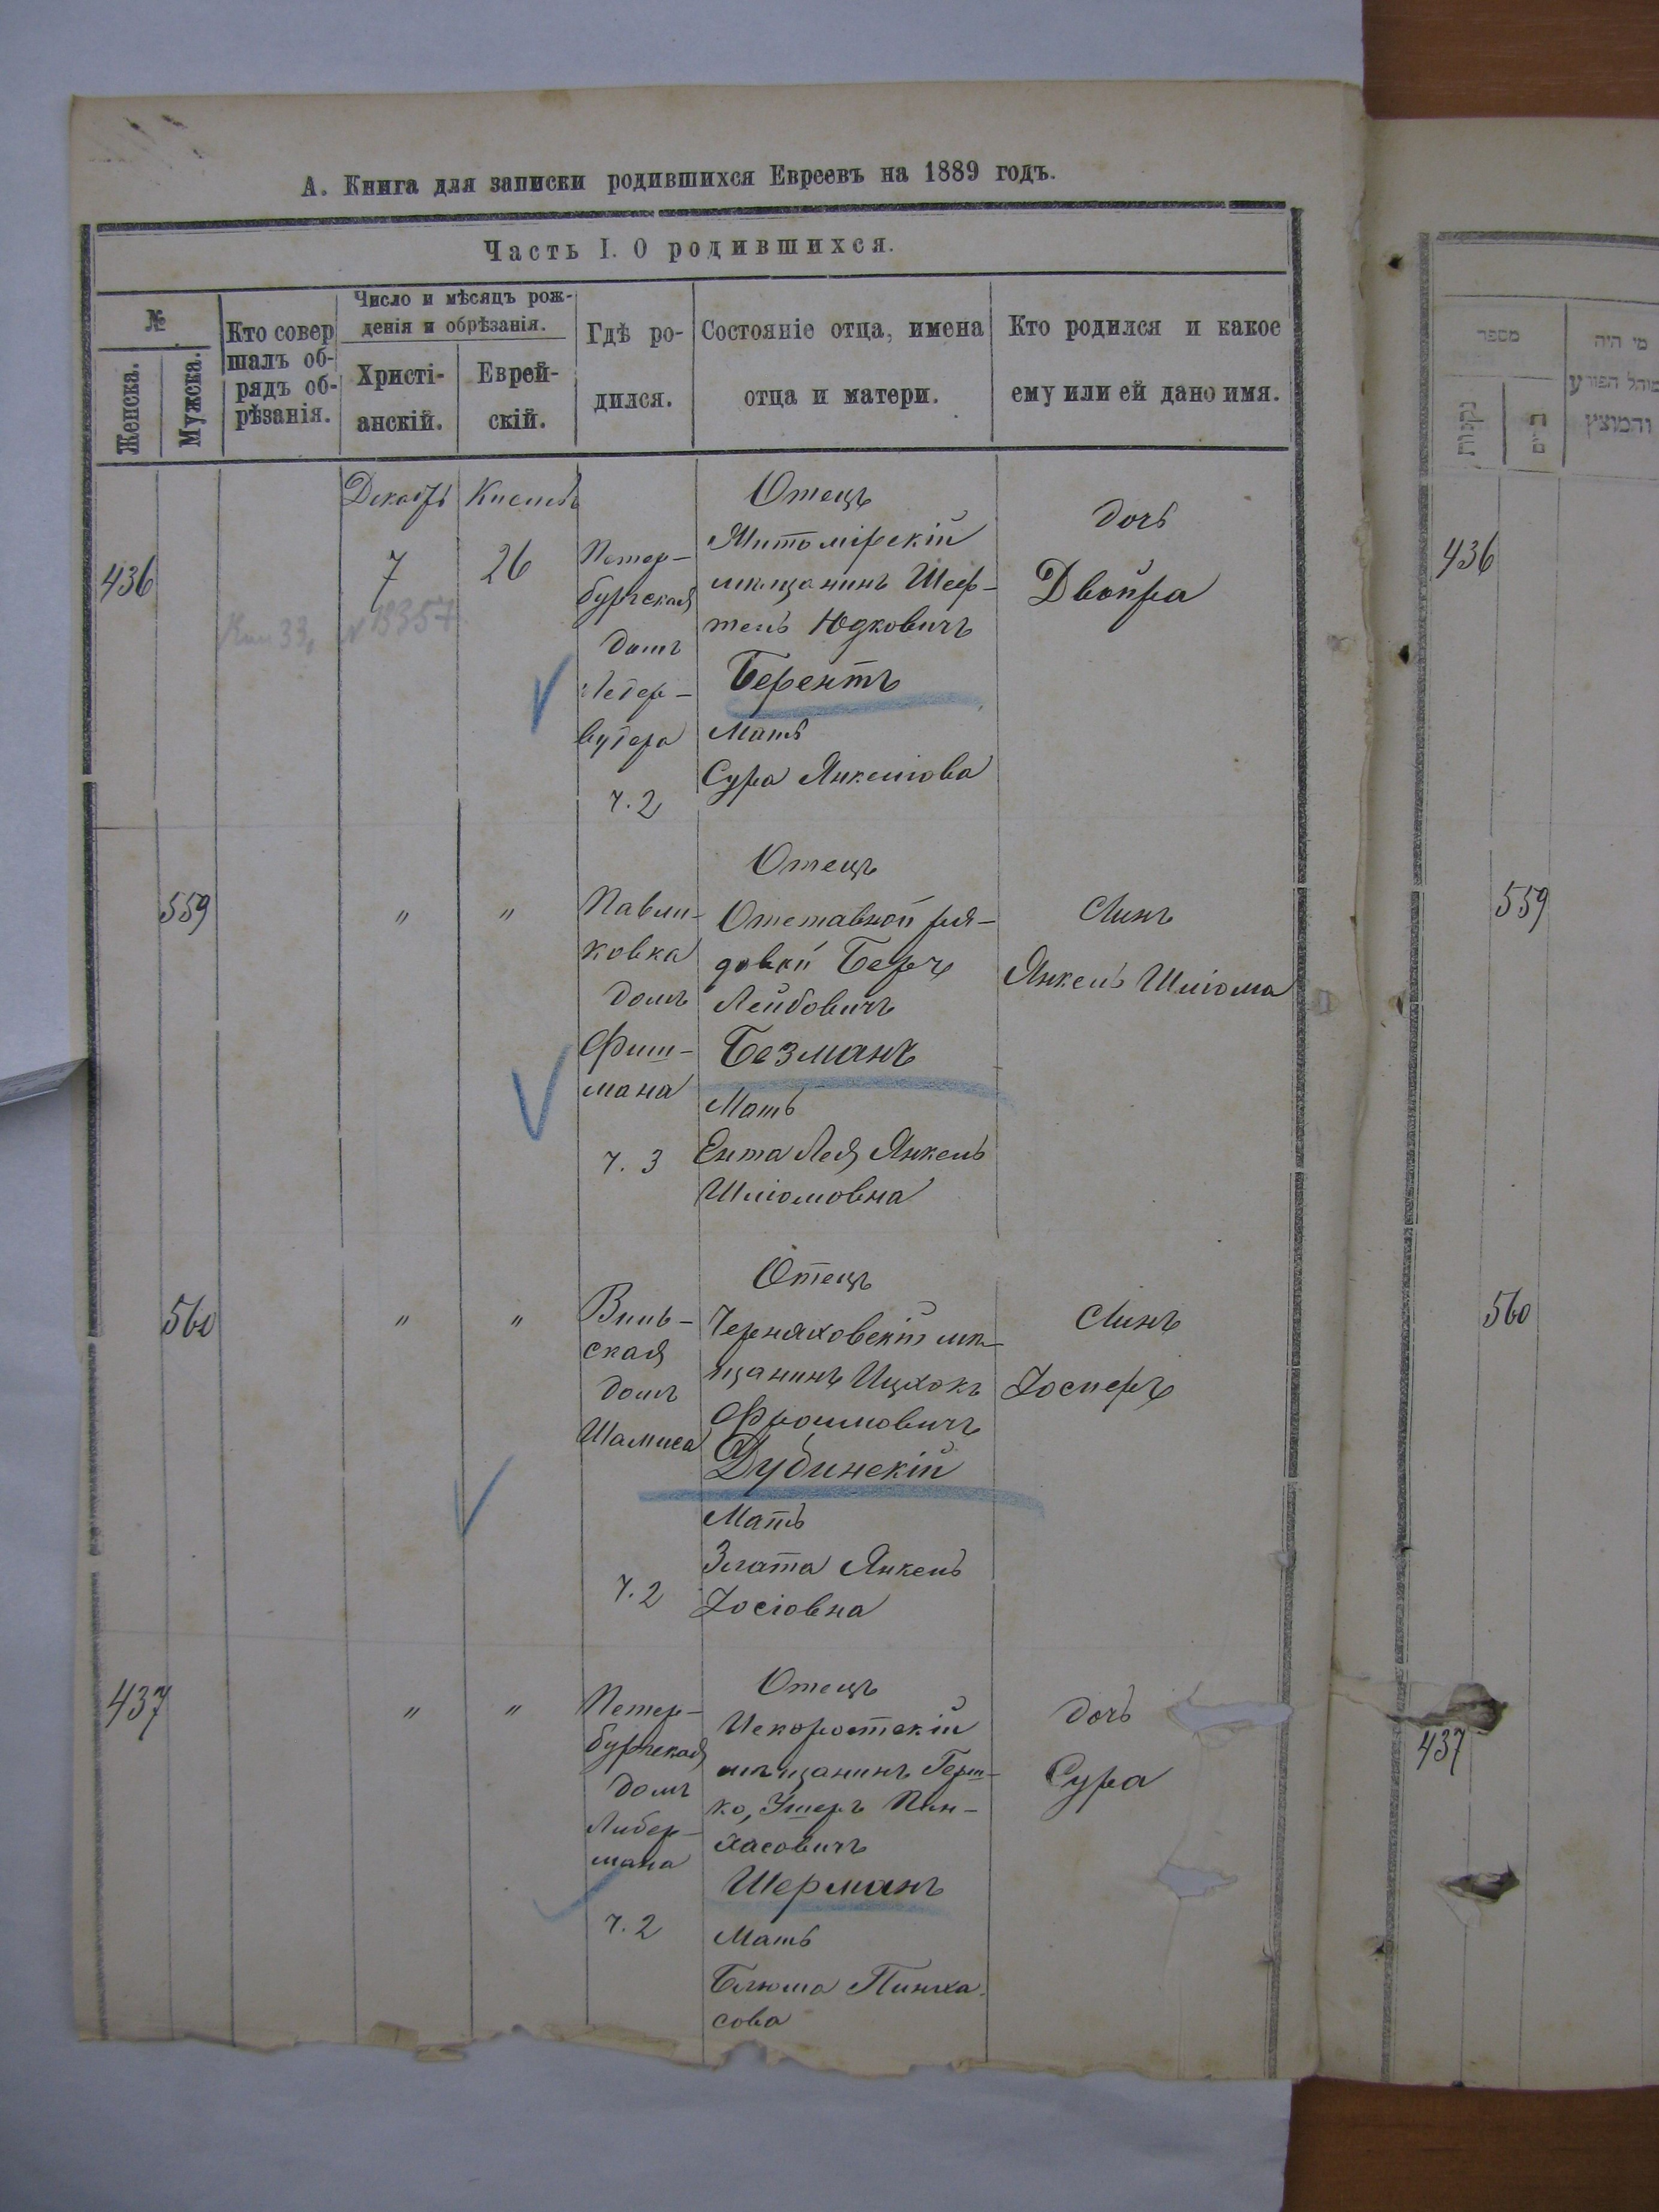 А. Книга для записки родившихся Евреевъ на 1889 годъ.
Часть I. О родившихся.
№
Женска.
Мужска.
Кто совер
шалъ об-
рядъ об-
рѣзанія.
Число и мѣсяцъ рож-
денія и обрѣзанія.
Христі-
анскій.
Еврей-
скій.
Гдѣ ро-
дился.
Состояніе отца, имена
отца и матери.
Кто родился и какое
ему или ей дано имя.
436
7
26
Петер-
бургская
домъ
вутера
ч. 2
Отецъ
Житомірскій
мѣщанинъ Шеф-
тель Юдковичъ
Берентъ
Мать
Сура Янкелiова
дочь
Двойра
559
"
"
Павли-
ковка
домъ
Фиш-
мана
ч. 3
Отецъ
Отставной ря-
довой Беръ
Лейбовичъ
Безманъ
Мать
Ента Лея Янкель
Шліомовна
Сынъ
Янкель Шліома
560
"
"
Виль-
ская
домъ
Шамиса
ч. 2
Отецъ
Черняховскій мѣ-
щанинъ Ицхокъ
Фроимовичъ
Дубинскій
Мать
Злата Янкель
Іосіовна
Сынъ
Іосперъ
437
"
"
Петер-
бургская
домъ
Либер-
мана
ч. 2
Отецъ
Искоростскій
мѣщанинъ Герш-
ко, Ушеръ Пин-
хасовичъ
Шерманъ
Мать
Блюма Пинха-
сова
дочь
Сура
מספר
נקבות
זכרים
מי היה
מוהל הפורע
והמוצץ
436
559
560
437